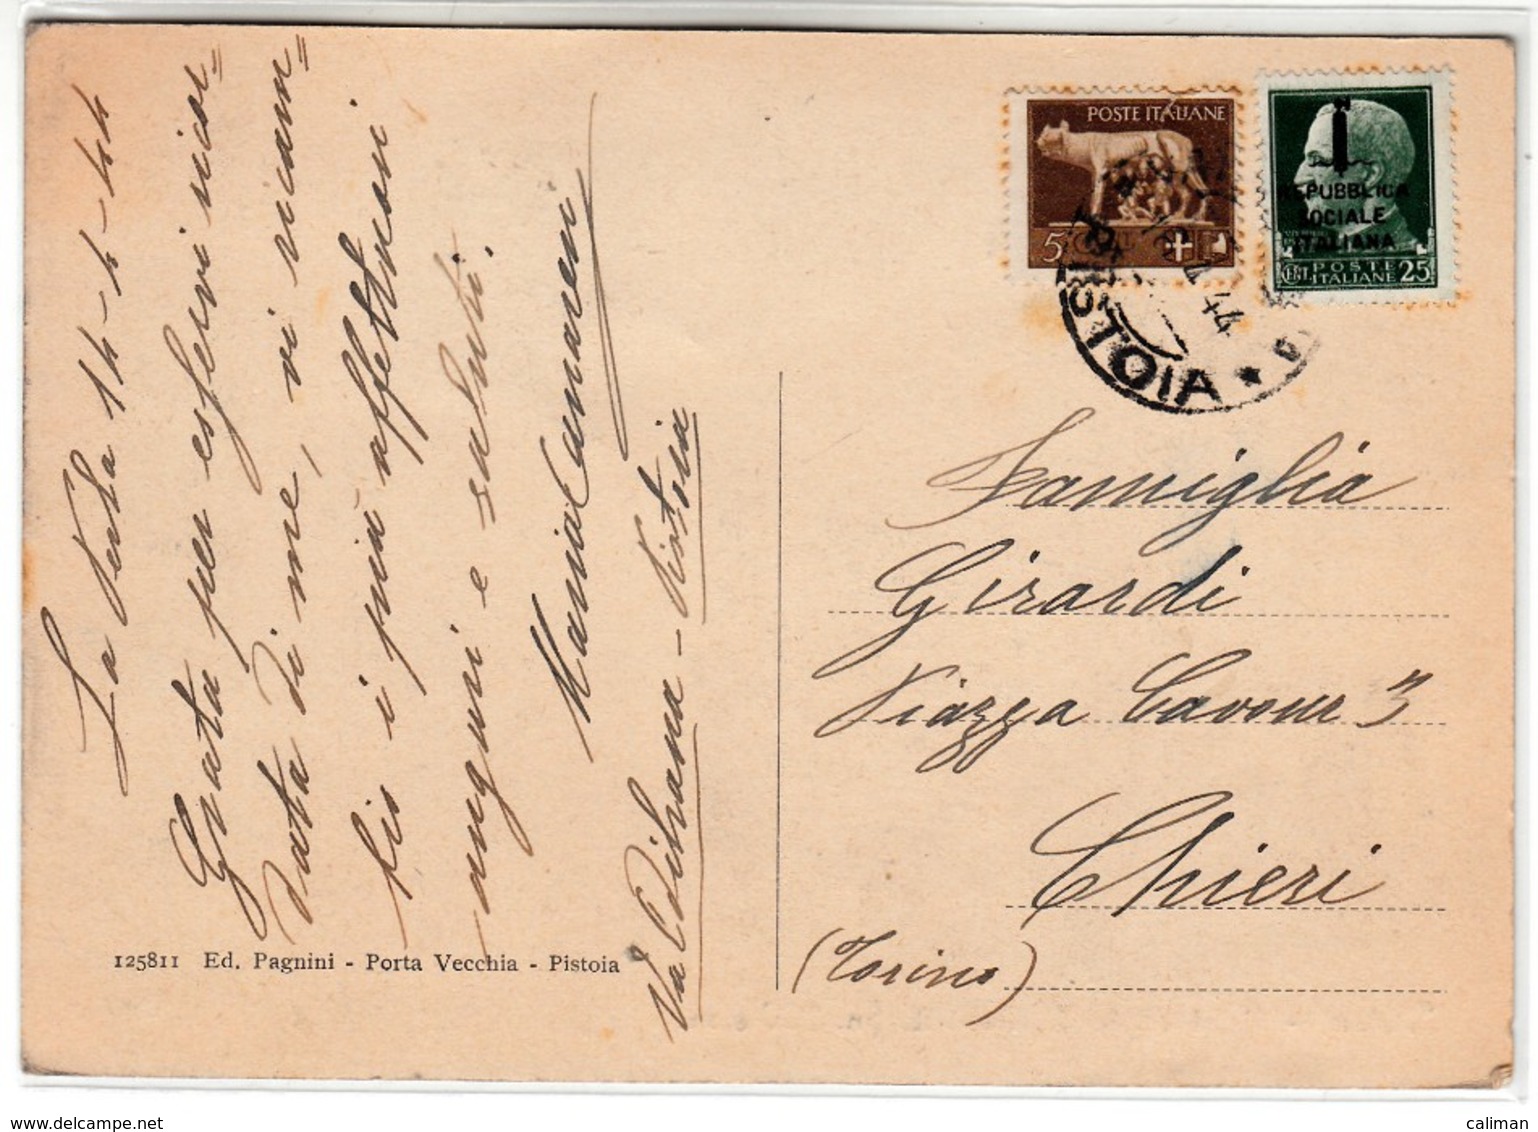 La Verta 14-4-44
Grata per esservi ricor=
data di me, vi ricam=
bio i più affettuosi
auguri e saluti.
Maria
Via Adihana - Pistoia
125811 Ed. Pagnini - Porta Vecchia - Pistoia
POSTE ITALIANE
5 CENT
REPUBBLICA
SOCIALE
ITALIANA
CENT. POSTE ITALIANE 25
PISTOIA
44
Famiglia
Girardi
Piazza Cavour 3
Chieri
(Torino)
www.delcampe.net
caliman